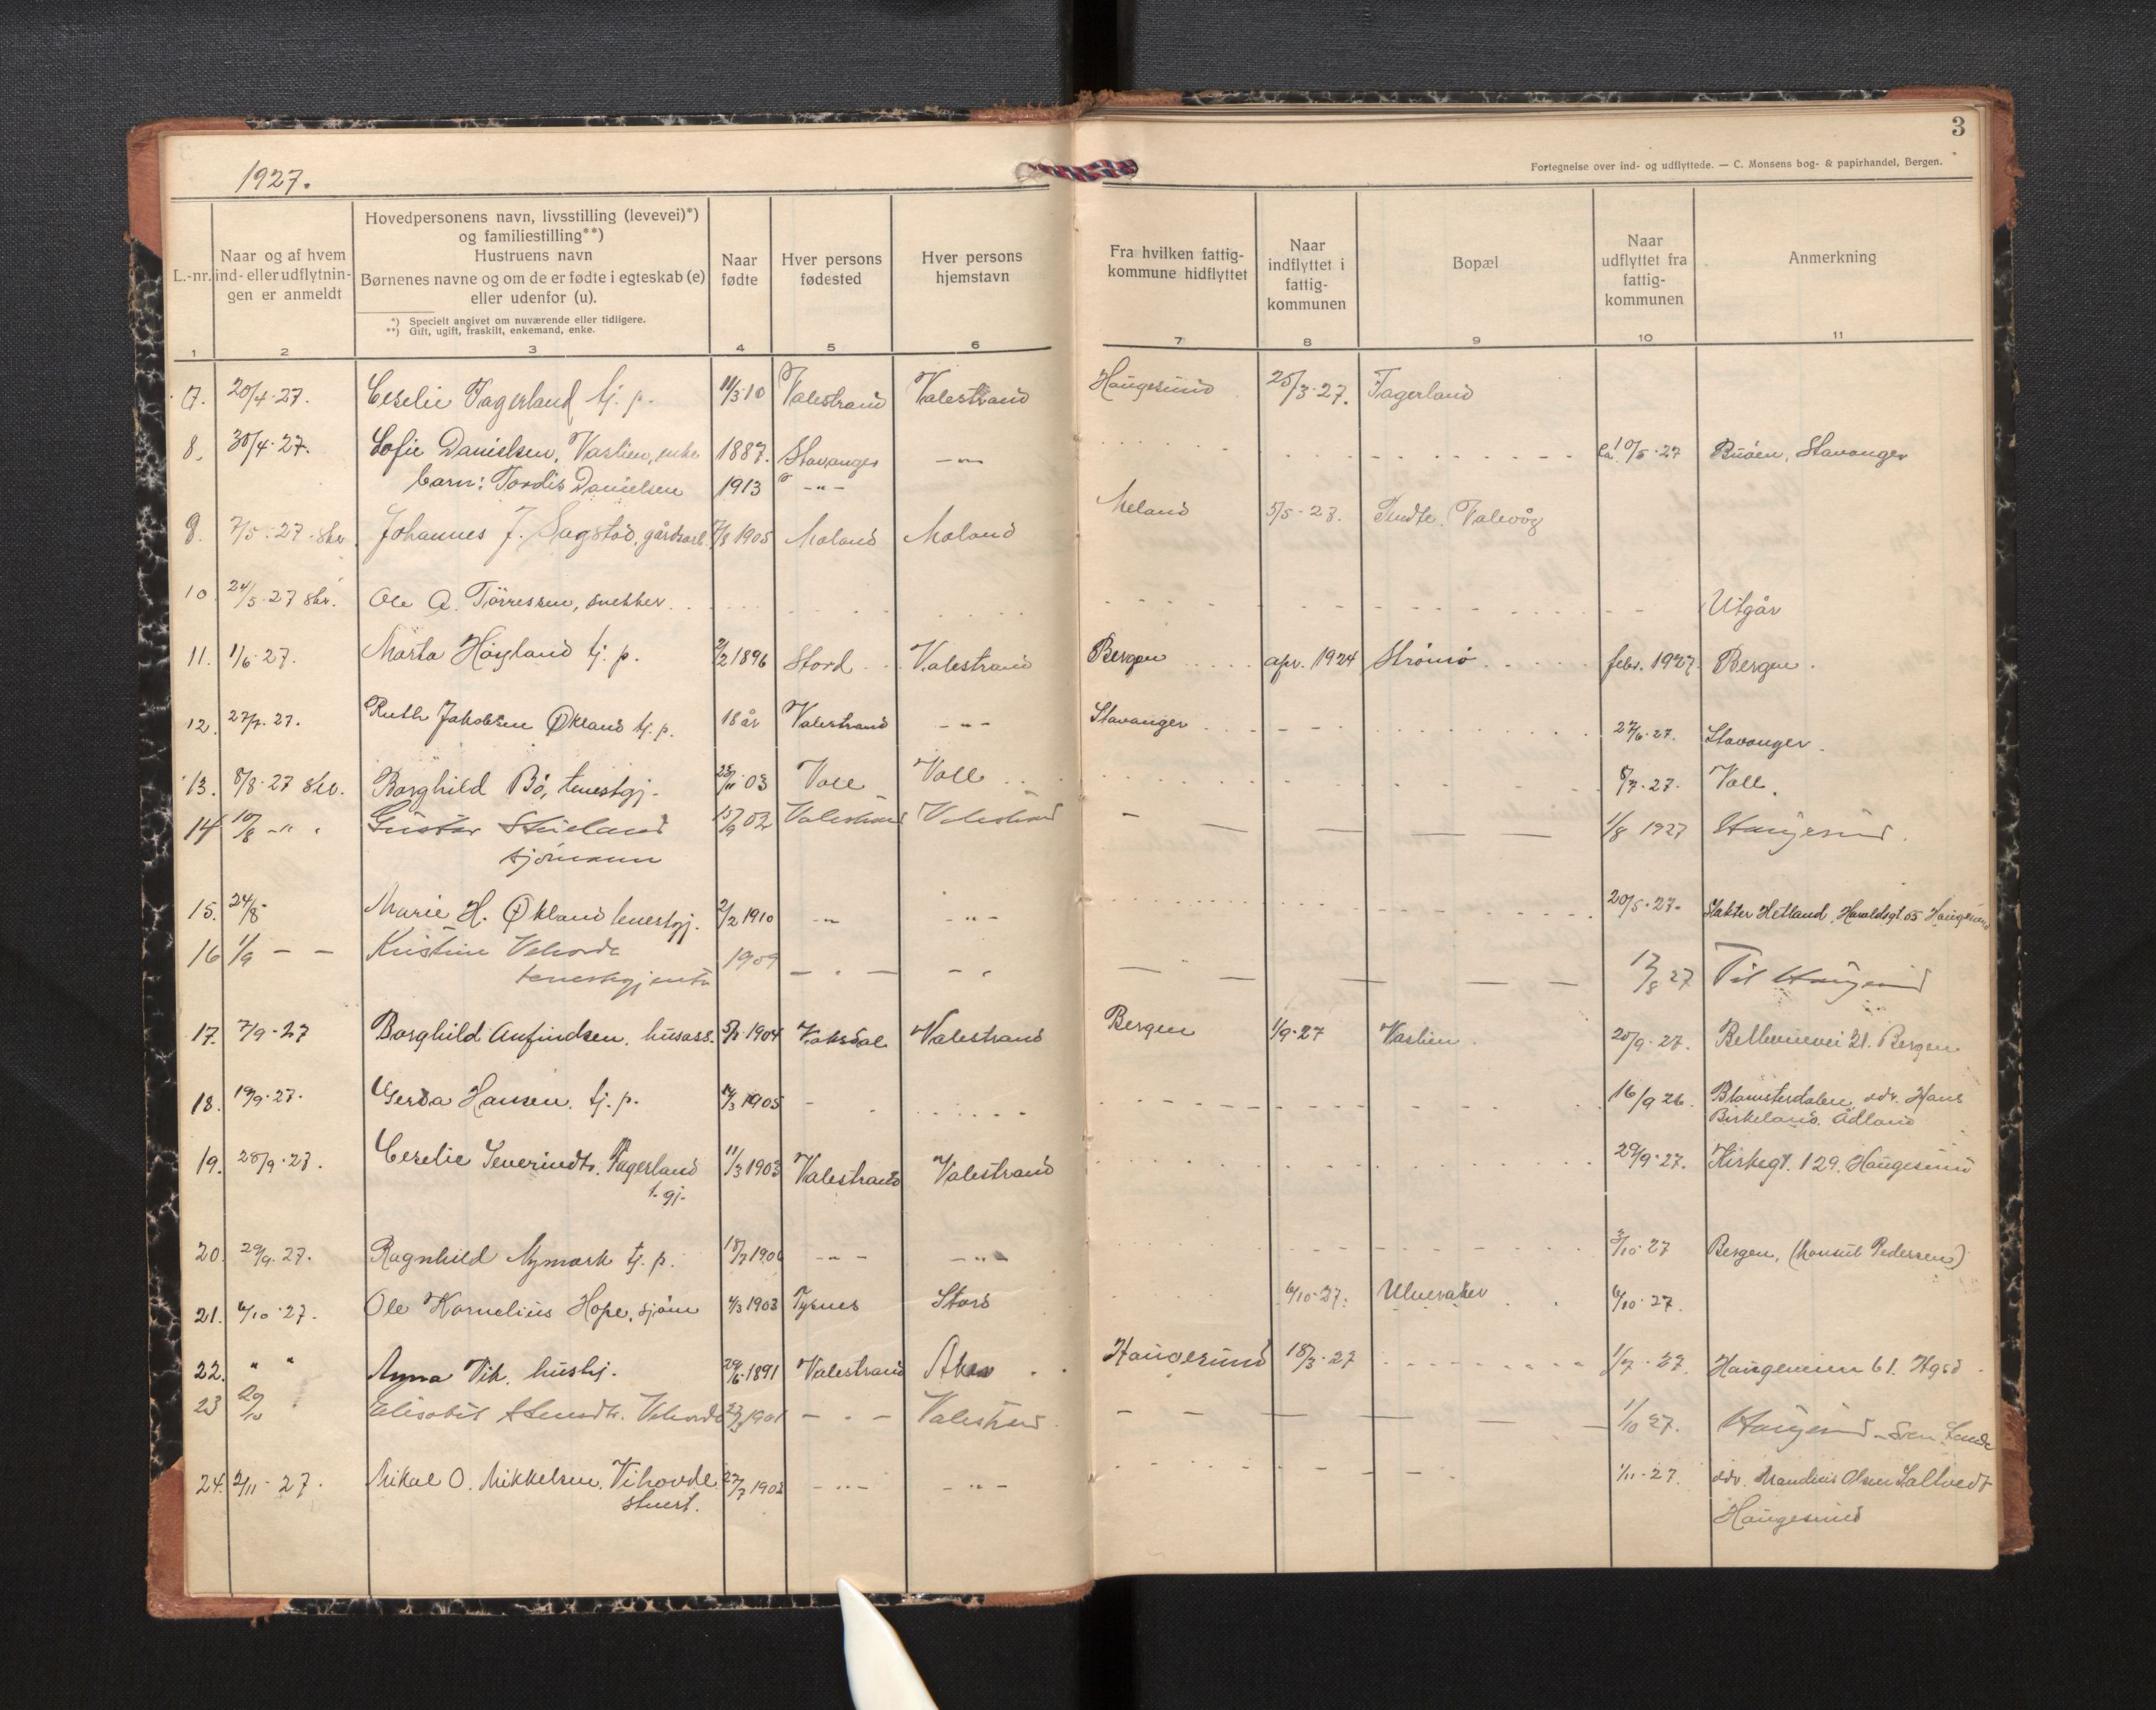 1927.
3
Fortegnelse over ind- og udflyttede. — C. Monsens bog- & papirhandel, Bergen.
L.-nr.
Naar og af hvem
ind- eller udflytnin-
gen er anmeldt
Hovedpersonens navn, livsstilling (levevei)*)
og familiestilling**)
Hustruens navn
Børnenes navne og om de er fødte i egteskab (e)
eller udenfor (u).
*) Specielt angivet om nuværende eller tidligere.
**) Gift, ugift, fraskilt, enkemand, enke.
Naar
fødte
Hver persons
fødested
Hver persons
hjemstavn
Fra hvilken fattig-
kommune hidflyttet
Naar
indflyttet i
fattig-
kommunen
Bopæl
Naar
udflyttet fra
fattig-
kommunen
Anmerkning
1 2 3 4 5 6 7 8 9 10 11
7. 20/4·27. Ceselie Fagerland tj. p. 11/3·10 Valestrand Valestrand Haugesund 25/3·27. Fagerland
8. 30/4·27. Sofie Danielsen, Vaslien, enke 1887. Stavanger —"— ca. 10/5·27 Buöen, Stavanger
barn: Tordis Danielsen 1913 —"—
9. 7/5·27 skr. Johannes J. Sagstad, gårdsarb. 1905 Meland Meland Meland 5/5·27. Valevåg
10. 24/5·27 skr. Ole A. Törressen, snekker Utgår
11. 1/6·27. Marta Höyland tj. p. 2/2 1896 Stord Valestrand Bergen apr. 1924 Strömö febr. 1927. Bergen.
12. 27/7·27. Ruth Jakobsen Økland tj. p. 18 år Valestrand —"— Stavanger 27/6·27. Stavanger.
13. 8/8·27 skr. Borghild Bö, tenestgj. 25/11 03 Voll Voll 8/7·27. Voll.
14 10/8 —"— Gustav Stueland 15/9 02 Valestrand Valestrand 1/8 1927 Haugesund.
sjömann
15. 24/8 Marie H. Økland tenestgj. 2/2 1910 —"— —"— 20/5·27. Slakter Hetland, Haraldsgt. 55 Haugesund
16 1/9 — — Kristine Vehovde 1909 — " — — " 17/8 27 Til Haugesund
tenestgjenta
17. 7/9·27 Borghild Anfindsen, husass. 1904 Vaksdal Valestrand Bergen 1/9·27 Vaslien. 20/9·27. Bellevuevei 21. Bergen
18. 19/9·27. Gerda Hansen. tj. p. 1905 16/9 26. Blomsterdalen, adr. Hans
Birkeland. Ådland
19. 28/9·27. Ceselie Severindtr. Fagerland 11/3 1903 Valestrand Valestrand 29/9·27. Kirkegt. 129. Haugesund
t. gj.
20. 29/9·27. Ragnhild Nymark tj. p. 18/7 1906 —"— —"— 3/10·27 Bergen, (konsul Pedersen)
21. 6/10·27. Ole Kornelius Hope, sjöm 4/3 1903 Tysnes Stord 6/10·27. Ulveraker 6/10·27.
22. " " Anna Vik. hushj. 29/6·1891 Valestrand Haugesund 18/3·27 1/7·27. Haugeveien 61. Hgsd.
23 29/10 " Elisabet Vehovde 1901 — " — Valestrand. 1/10 27. Haugesund
24. 2/11·27. Mikal O. Mikkelsen, Vihovde 27/7 1903 —"— —"— 1/11·27. adr. Olsen Saltvedt
stuert.
Haugesund